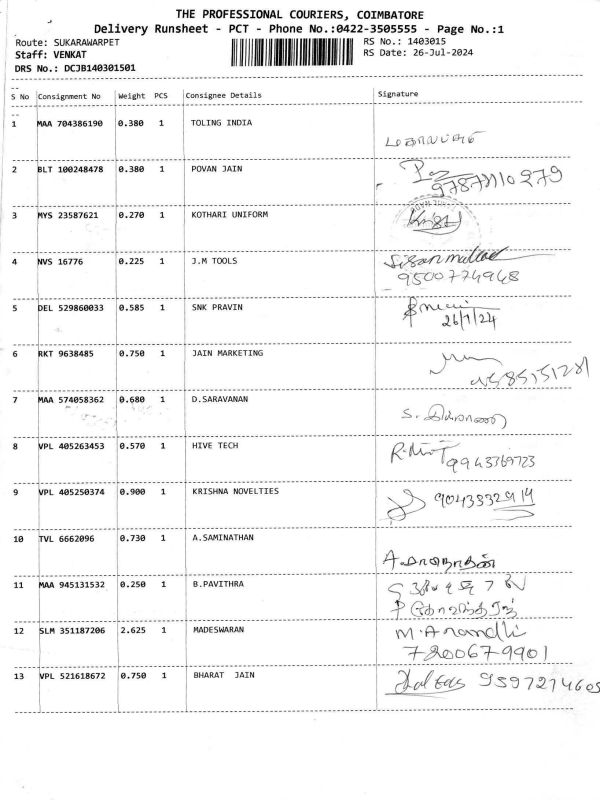 THE PROFESSIONAL COURIERS, COIMBATORE
Delivery Runsheet - PCT - Phone No.:0422-3505555 - Page No.:1
Route: SUKARAWARPET
RS No.: 1403015
Staff: VENKAT
RS Date: 26-Jul-2024
DRS No.: DCJB140301501
S No Consignment No Weight PCS Consignee Details Signature
1 MAA 704386190 0.380 1 TOLING INDIA
2 BLT 100248478 0.380 1 POVAN JAIN
3 MYS 23587621 0.270 1 KOTHARI UNIFORM
4 NVS 16776 0.225 1 J.M TOOLS
9500774948
5 DEL 529860033 0.585 1 SNK PRAVIN
26/7/24
6 RKT 9638485 0.750 1 JAIN MARKETING
7 MAA 574058362 0.680 1 D.SARAVANAN
8 VPL 405263453 0.570 1 HIVE TECH
9943769723
9 VPL 405250374 0.900 1 KRISHNA NOVELTIES
9043332914
10 TVL 6662096 0.730 1 A.SAMINATHAN
11 MAA 945131532 0.250 1 B.PAVITHRA
12 SLM 351187206 2.625 1 MADESWARAN M.Anandhi
7200679901
13 VPL 521618672 0.750 1 BHARAT JAIN 9597214605